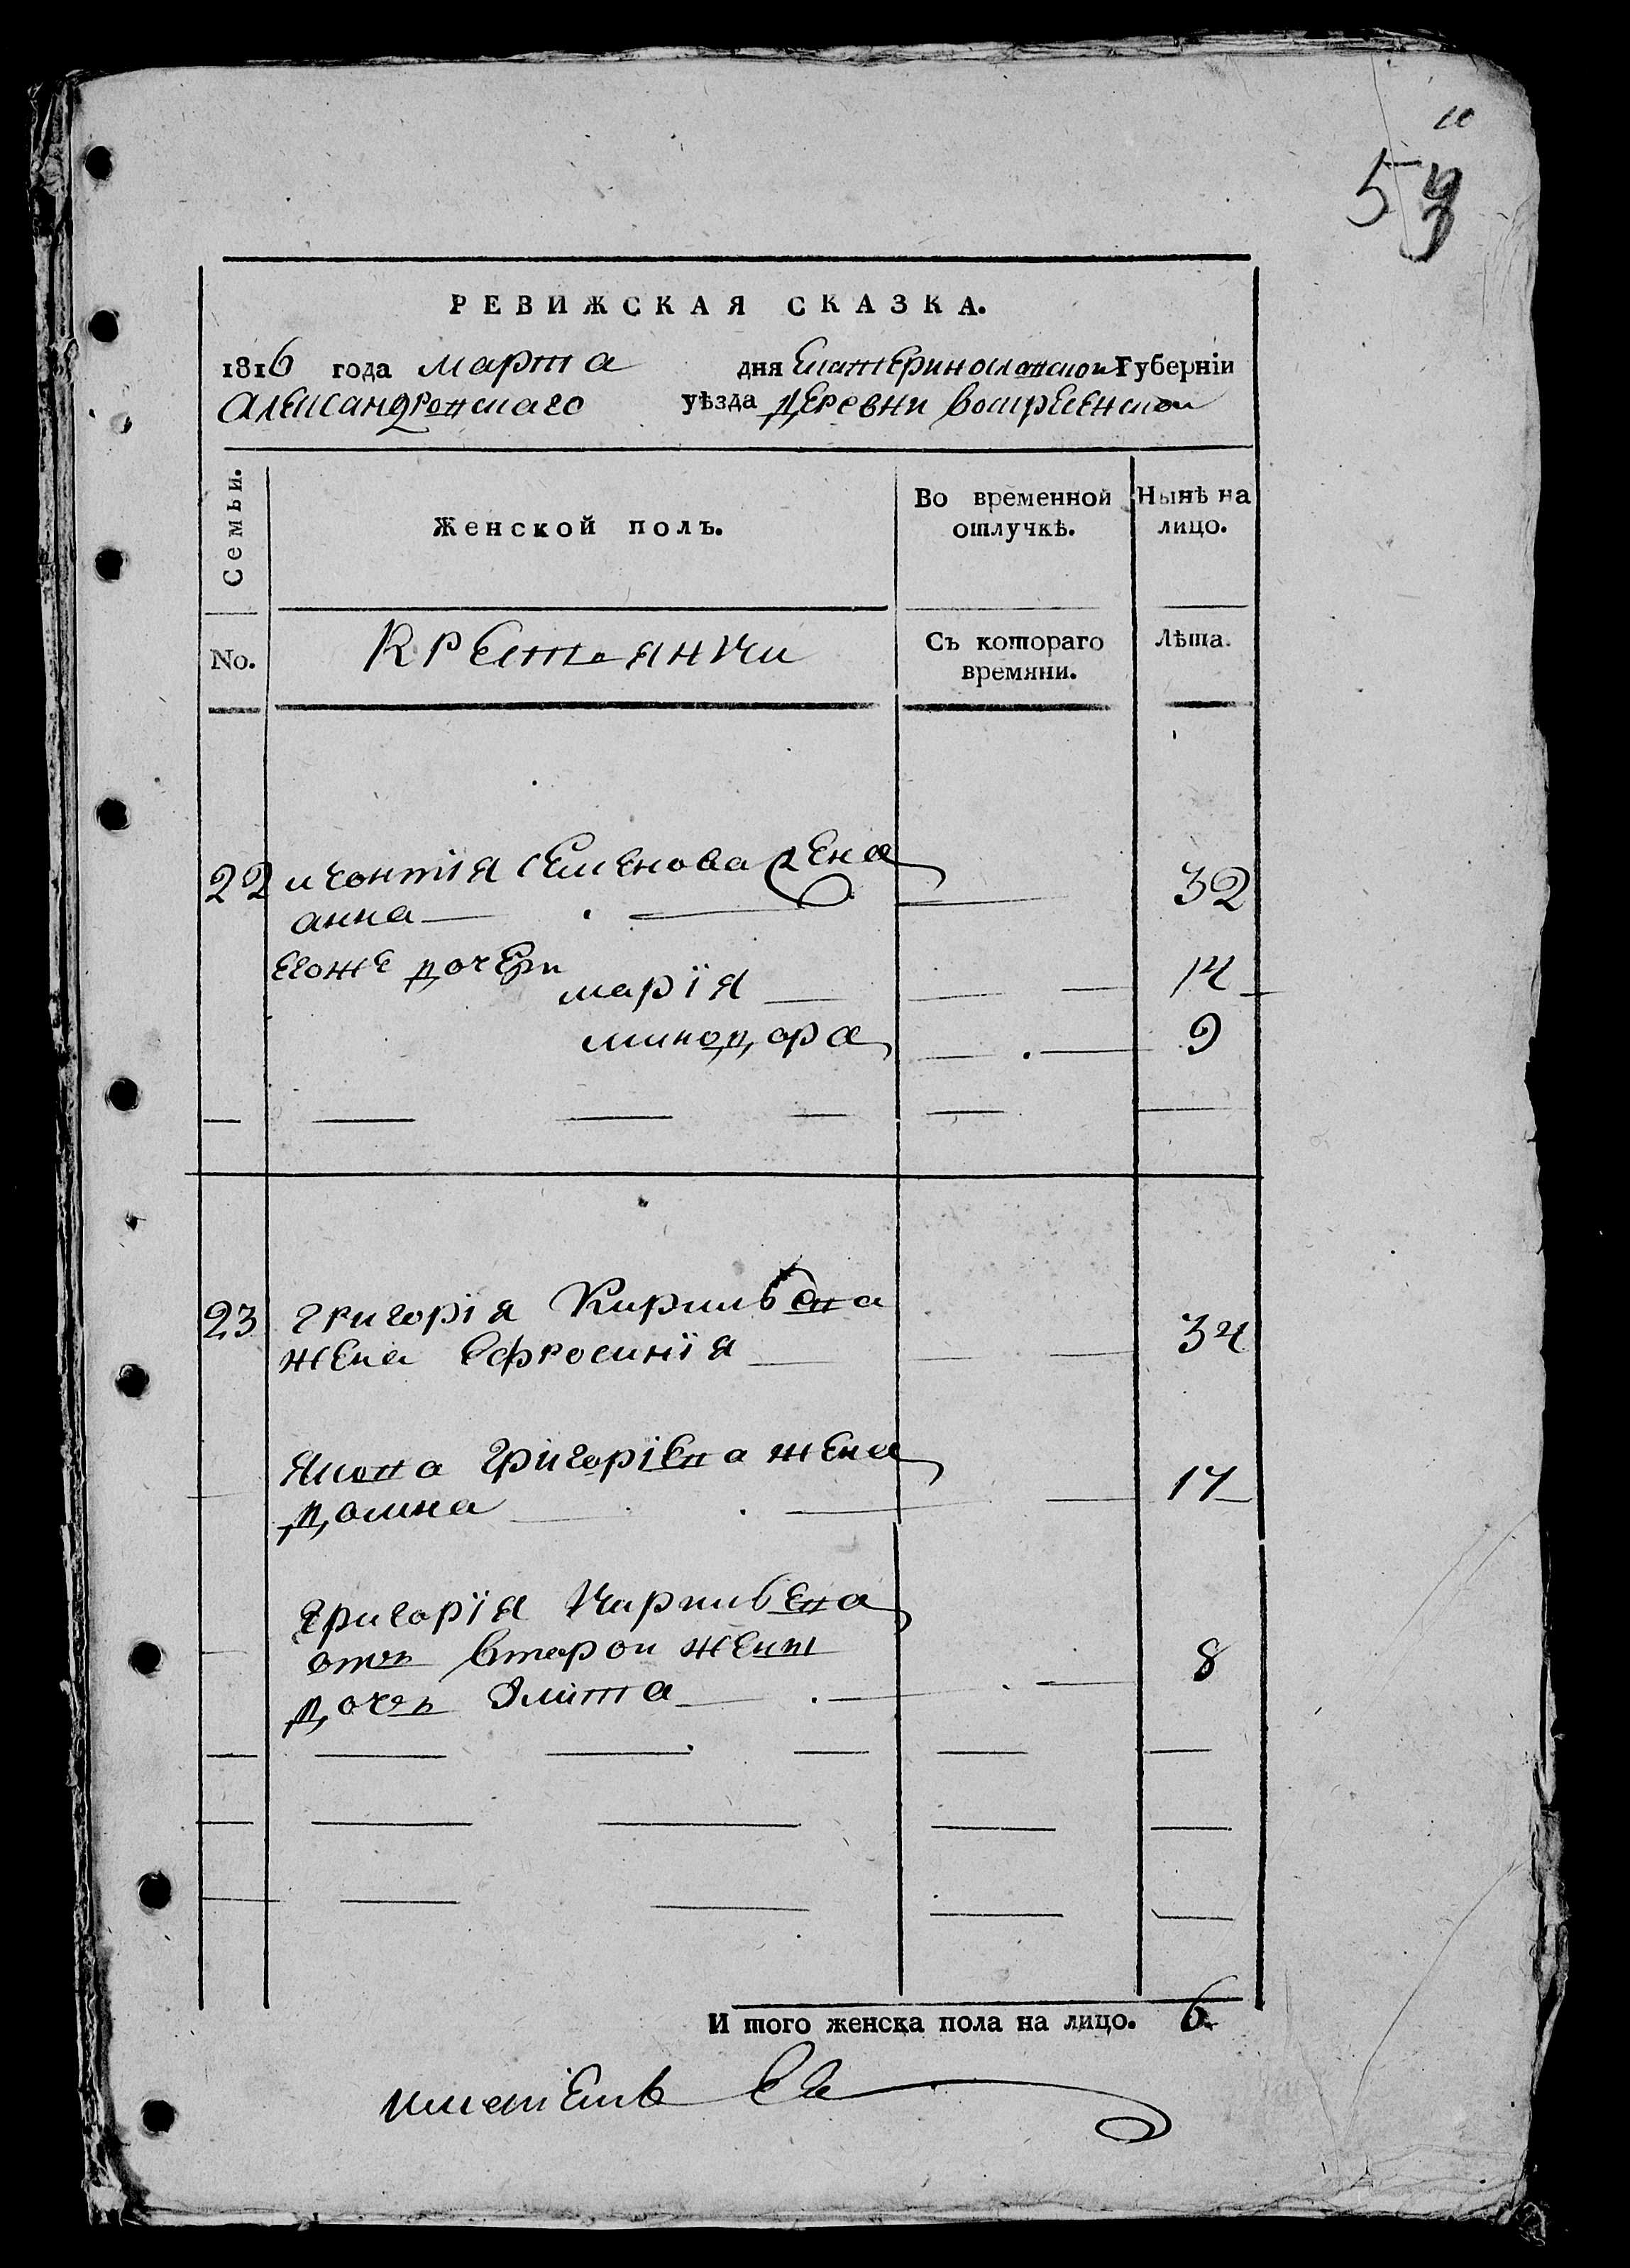 10
53
РЕВИЖСКАЯ СКАЗКА.
1816 года марта дня Екатеринославской Губерніи
Александровскаго уѣзда деревни воскресенской
Семьи.
Женской полъ.
Во временной отлучкѣ.
Нынѣ на лицо.
No.
Крестьянки
Съ котораго времяни.
Лѣта.
22 леонтія семенова жена
анна 32
егоже дочери
марія 14
минодора 9
23 григорія
жена ефросинія 34
Якова григоріева жена
домна 17
григорія
отъ второй жены
дочь 8
И того женска пола на лицо. 6